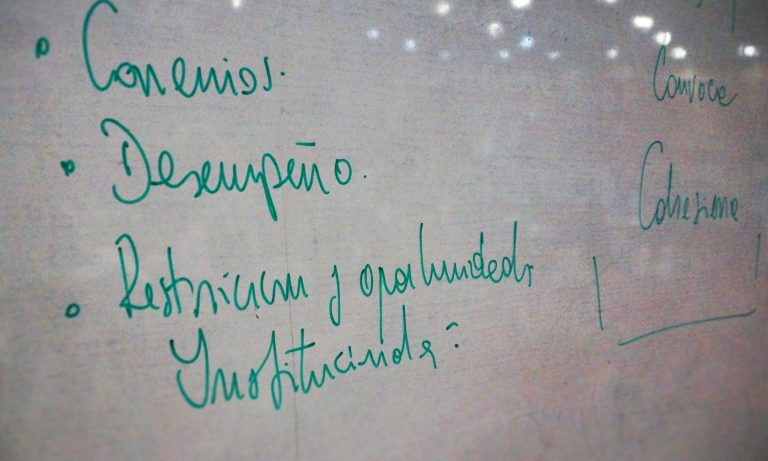 • Convenios.
• Desempeño.
• Restricciones y oportunidades
Institucionales
Convoce
Cohesione